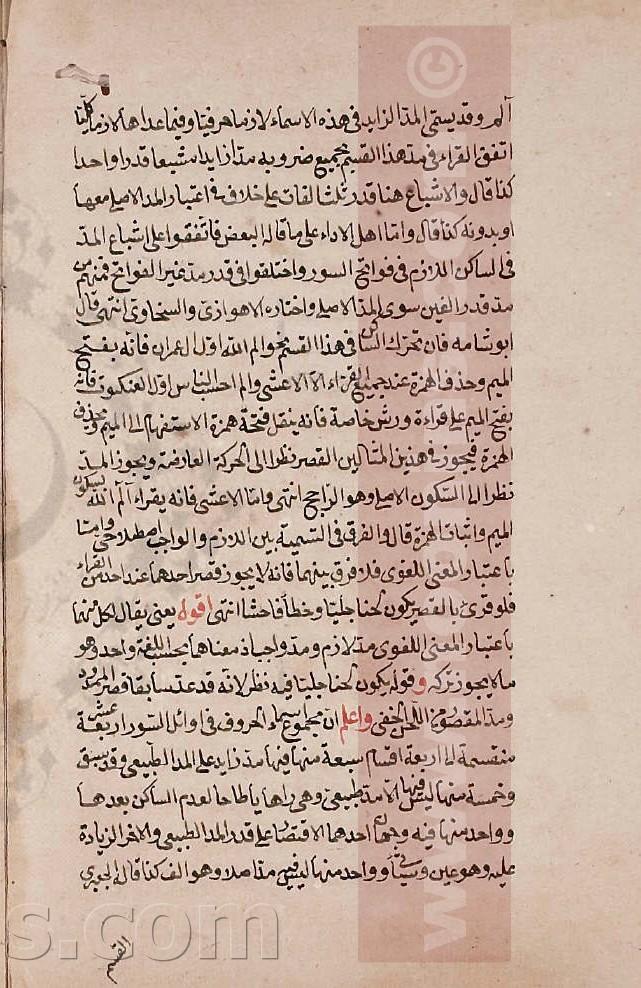 آلم وقد يسمى المد الزايد في هذه الاسماء لازما حرفيا وفيما عداها لازما كلميا
اتفق القراء في مد هذا القسم بجميع ضروبه مدا زايدا مشبعا قدرا واحدا
كذا قال والاشباع هنا قدر ثلث الفات على خلاف في اعتبار المد الاصلي معها
او بدونه كذا قال واما اهل الاداء على ما قاله البعض فاتفقوا على اشباع المد
في الساكن اللازم في فواتح السور واختلفوا في قدر مد غير الفواتح فمنهم من
مد قدر الفين سوى المد الاصلي واختاره الاهوازي والسخاوي انتهى قال
ابو شامه فان تحرك الساكن في هذا القسم نحو الم الله اول ال عمران فانه بفتح
الميم وحذف الهمزة عند جميع القراء الا الاعشى والم احسب الناس اول العنكبوت فانه
بفتح الميم على قراءة ورش خاصة فانه ينقل فتحة همزة الاستفهام الى الميم ويحذف
الهمزة فيجوز في هذين المثالين القصر نظرا الى الحركة العارضة ويجوز المد
نظرا الى السكون الاصلي وهو الراجح انتهى واما الاعشى فانه يقراء آلم الله بسكون
الميم واثبات الهمزة قال والفرق في التسمية بين اللازم والواجب اصطلاحي واما
باعتبار المعنى اللغوى فلا فرق بينهما فانه لا يجوز قصر احدهما عند احد من القراء
فلو قرئ بالقصر يكون لحنا جليا وخطأ فاحشا انتهى اقول يعني يقال لكل منهما
باعتبار المعنى اللغوى مد لازم ومد واجب اذ معناهما بحسب اللغة واحد وهو
ما لا يجوز تركه وقوله يكون لحنا جليا فيه نظر لانه قد عد سابقا قصر الممدود
ومد المقصور من اللحن الخفي واعلم ان مجموع اسماء الحروف في اوائل السور اربعة عشر
منقسمة الى اربعة اقسام سبعة منها فيها مد زايد على المد الطبيعي وقد سبق
وخمسة منها ليس فيها الا مد طبيعي وهي را ها يا طا حا لعدم الساكن بعدها
وواحد منها فيه وجهان احدهما الاقتصار على قدر المد الطبيعي والاخر الزيادة
عليه وهو عين وسيأتي وواحد منها ليس فيه مد اصلا وهو الف كذا قال الجعبري
القسم
s.com
www.
©